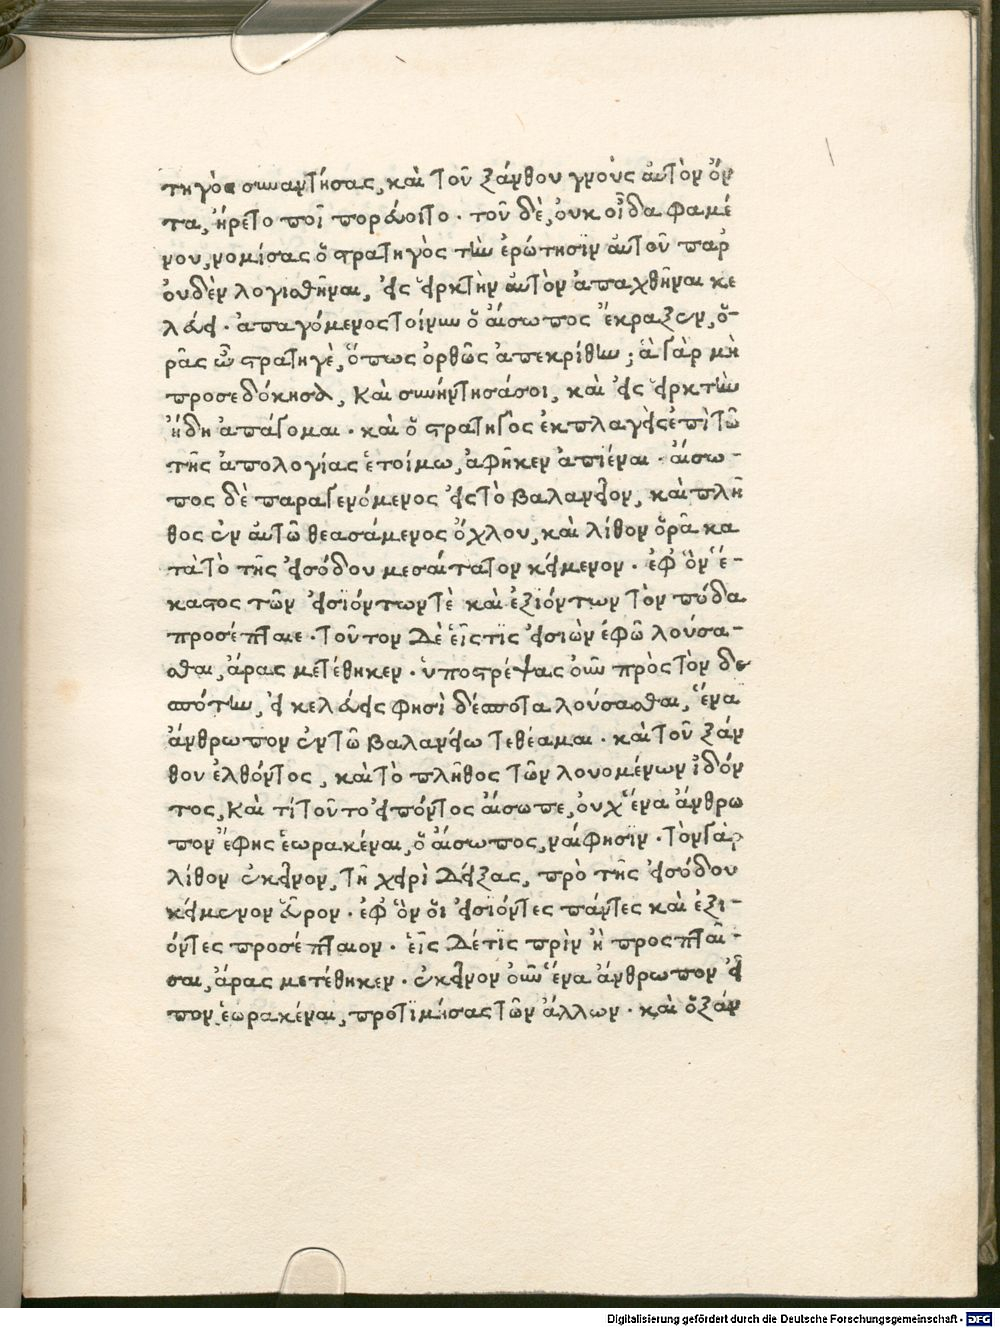 τηγὸς συναντήσας, καὶ τοῦ ξάνθου γνοὺς αὐτὸν ὄν
τα, ἤρετο ποῖ πορεύοιτο. τοῦ δὲ, οὐκ οἶδα φαμέ
νου, νομίσας ὁ στρατηγὸς τὴν ἐρώτησϊν αὐτοῦ παρ
οὐδὲν λογισθῆναι, εἰς εἱρκτὴν αὐτὸν ἀπαχθῆναι κε
λεύει. ἀπαγόμενος τοίνυν ὁ αἴσωπος ἔκραξεν, ὁ-
ρᾶς ὦ στρατηγὲ, ὅπως ὀρθῶς ἀπεκρίθην; ἃ γὰρ μὴ
προσεδόκησα, καὶ συνήντησάσοι, καὶ εἰς εἱρκτὴν
ἤδη ἀπάγομαι. καὶ ὁ στρατηγὸς ἐκπλαγεὶς ἐπὶ τῶ
τῆς ἀπολογίας ἑτοίμω, ἀφῆκεν ἀπιέναι. αἴσω-
πος δὲ παραγενόμενος εἰς τὸ βαλανεῖον, καὶ πλῆ
θος ἐν αὐτῶ θεασάμενος ὄχλου, καὶ λίθον ὁρᾶ κα
τὰ τὸ τῆς εἰσόδου μεσαίτατον κείμενον. ἐφ' ὃν ἕ-
καστος τῶν εἰσϊόντων τὲ καὶ ἐξιόντων τὸν πόδα
προσέπταιε. τοῦτον δὲ εἷς τϊς εἰσιὼν ἐφῶ λούσα-
σθαι, ἄρας μετέθηκεν. ὑποστρέψας οὖν πρὸς τὸν δε
σπότην, εἰ κελεύεις φησὶ δέσποτα λούσασθαι, ἕνα
ἄνθρωπον ἐν τῶ βαλανείω τεθέαμαι. καὶ τοῦ ξάν
θου ἐλθόντος, καὶ τὸ πλῆθος τῶν λουομένων ἰδόν
τος, καὶ τί τοῦτο εἰπόντος αἴσωπε, οὐχ ἕνα ἄνθρω
πον ἔφης ἑωρακέναι, ὁ αἴσωπος, ναί φησϊν. τὸν γὰρ
λίθον ἐκεῖνον, τῆ χειρὶ δείξας, πρὸ τῆς εἰσόδου
κείμενον εὗρον. ἐφ' ὃν οἱ εἰσϊόντες πάντες καὶ ἐξι-
όντες προσέπταιον. εἷς δέ τϊς πρὶν ἢ προσπταῖ-
σαι, ἄρας μετέθηκεν. ἐκεῖνον οὖν ἕνα ἄνθρωπον εἶ
πον ἑωρακέναι, προτϊμήσας τῶν ἄλλων. καὶ ὁ ξάν
Digitalisierung gefördert durch die Deutsche Forschungsgemeinschaft - DFG